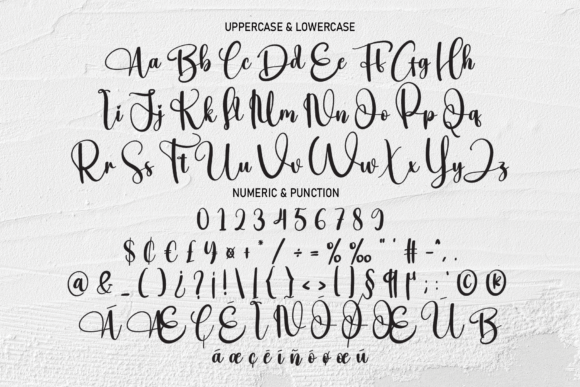 UPPERCASE & LOWERCASE
Aa Bb Cc Dd Ee Ff Gg Hh
Ii Jj Kk Ll Mm Nn Oo Pp Qq
Rr Ss Tt Uu Vv Ww Xx Yy Zz
NUMERIC & PUNCTION
0 1 2 3 4 5 6 7 8 9
$ ₵ € £ ¥ ¤ + * / ÷ = % ‰ " ' # - ^ , .
@ & _ ( ) ¿ ? ¡ ! \ | { } < > [ ] § ¶ ¦ ; : ' © ®
Á Æ Ç É Í Ñ Ó Ø Œ Ú ß
á æ ç é í ñ ó ø œ ú